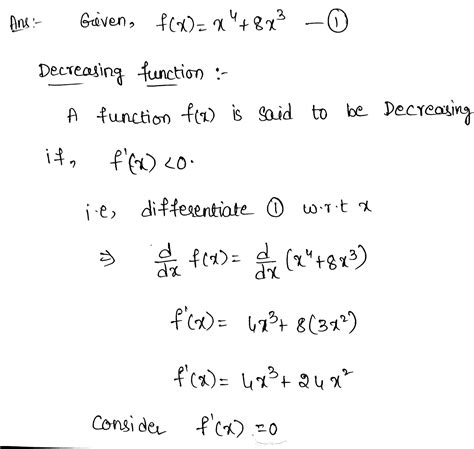 Ans:- Given, f(x) = x⁴ + 8x³ — ①
Decreasing function :-
A function f(x) is said to be Decreasing
if, f'(x) < 0.
i.e, differentiate ① w.r.t x
⇒ d/dx f(x) = d/dx (x⁴ + 8x³)
f'(x) = 4x³ + 8(3x²)
f'(x) = 4x³ + 24x²
Consider f'(x) = 0